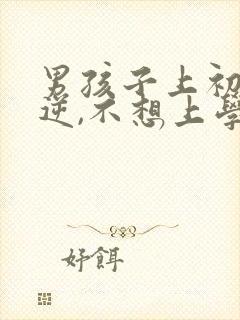 男孩子上初
逆,不想上學
好餌